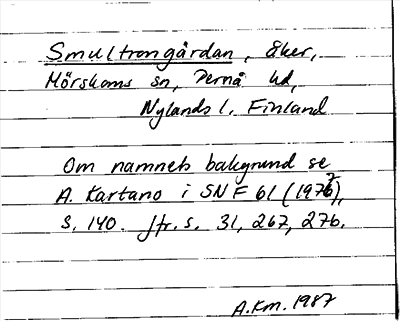 Smultrongårdan, åker,
Mörskoms sn, Pernå hd,
Nylands l. Finland
Om namnets bakgrund se
A. Kartano i SNF 61 (1976),
s. 140. Jfr. s. 31, 267, 276.
A.Km. 1987